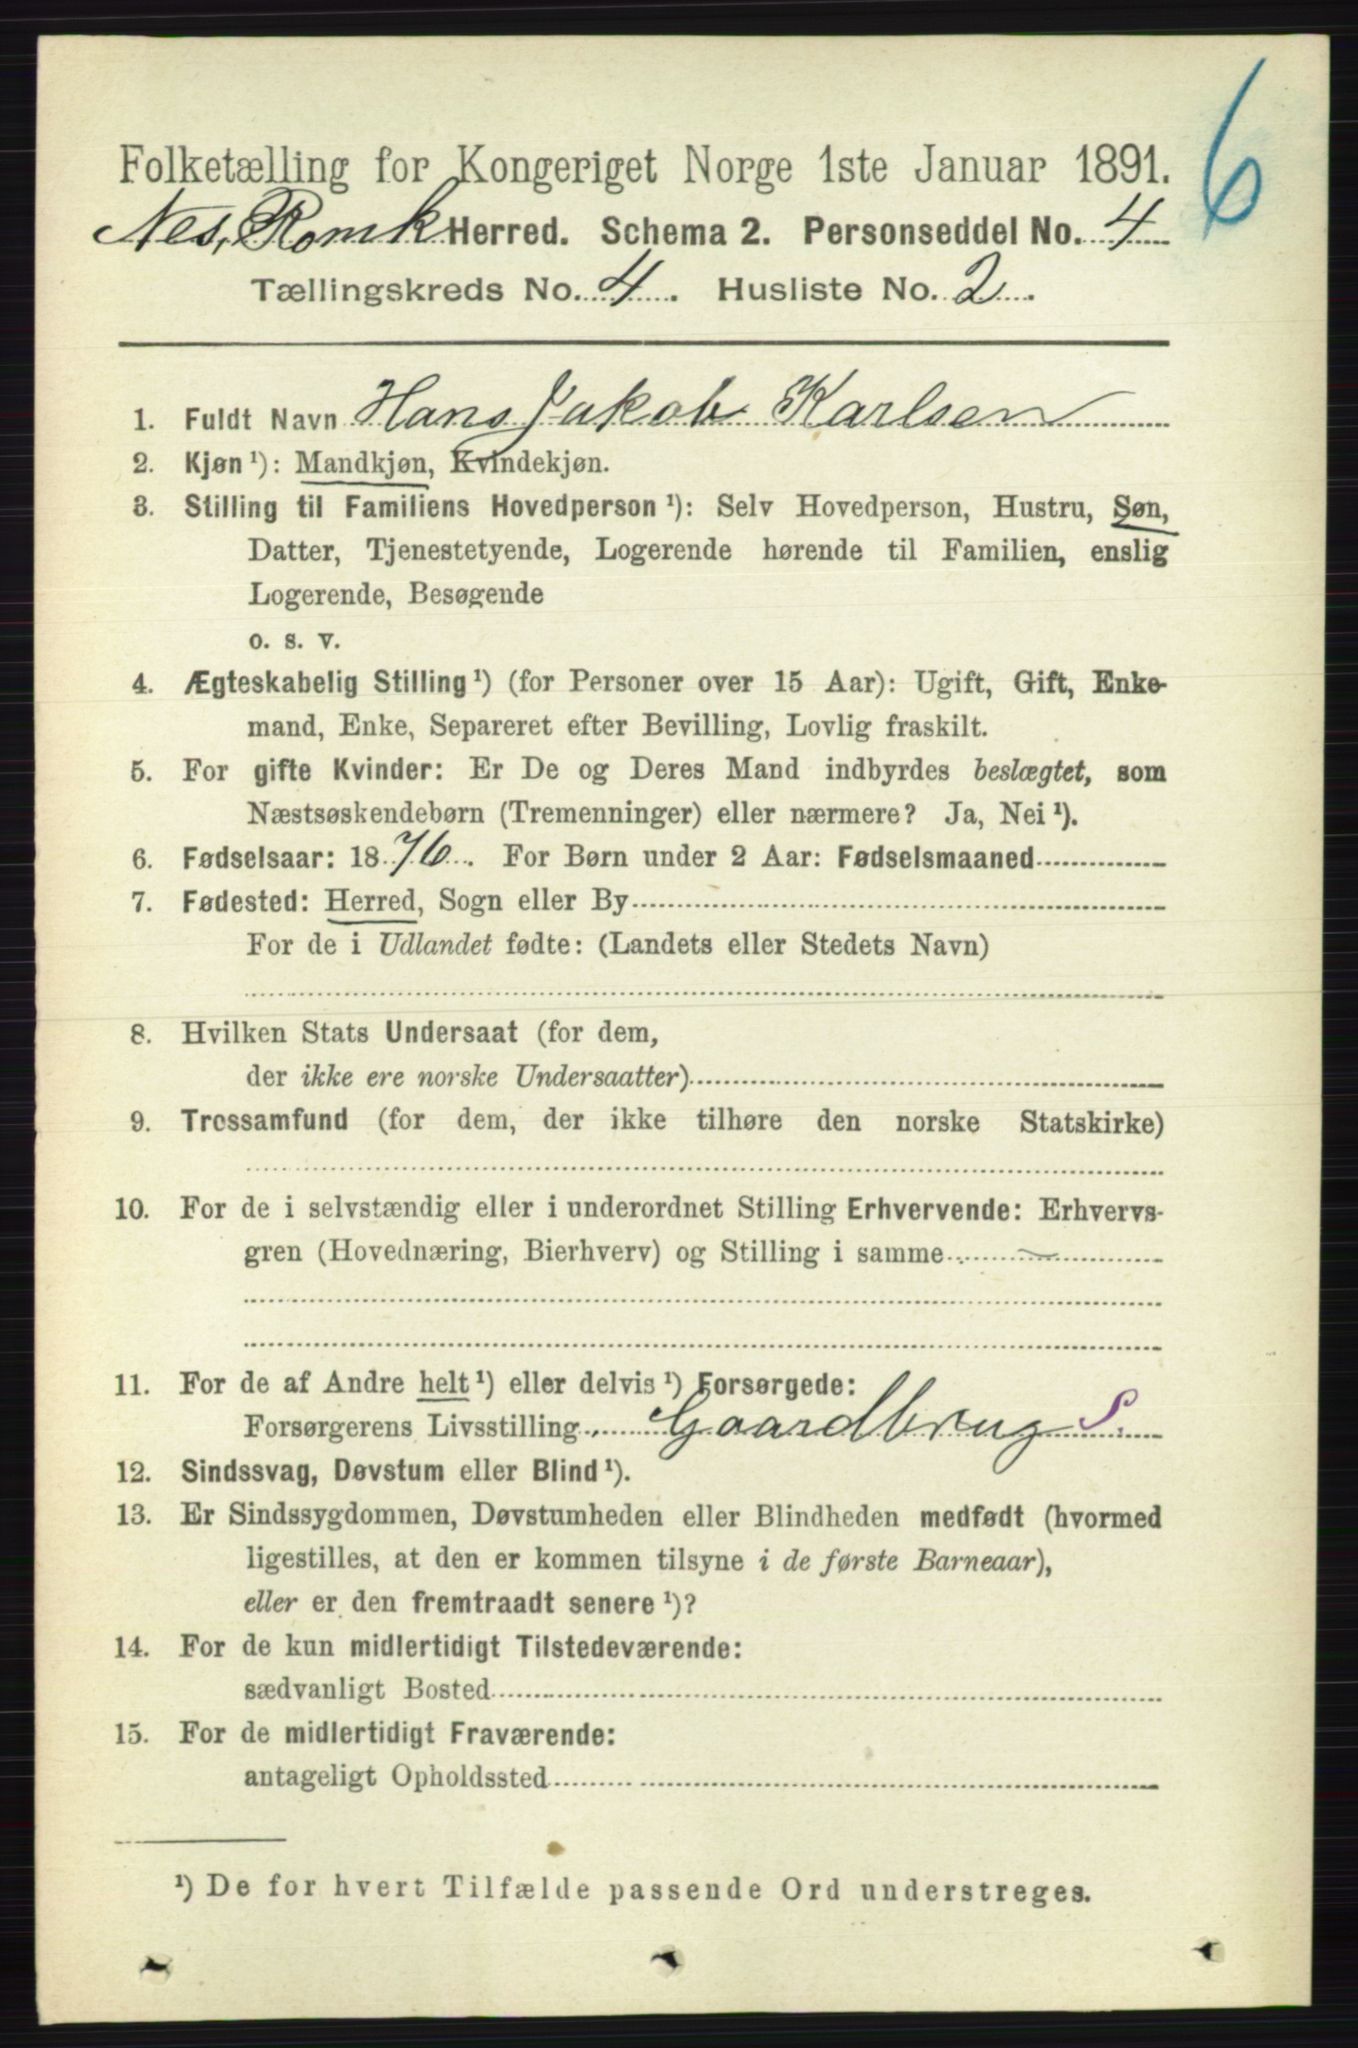 6
Folketælling for Kongeriget Norge 1ste Januar 1891.
Nes, Romk Herred. Schema 2. Personseddel No. 4
Tællingskreds No. 4. Husliste No. 2.
1. Fuldt Navn Hans Jakob Karlsen
2. Kjøn ¹): Mandkjøn, Kvindekjøn.
3. Stilling til Familiens Hovedperson ¹): Selv Hovedperson, Hustru, Søn,
Datter, Tjenestetyende, Logerende hørende til Familien, enslig
Logerende, Besøgende
o. s. v.
4. Ægteskabelig Stilling ¹) (for Personer over 15 Aar): Ugift, Gift, Enke-
mand, Enke, Separeret efter Bevilling, Lovlig fraskilt.
5. For gifte Kvinder: Er De og Deres Mand indbyrdes beslægtet, som
Næstsøskendebørn (Tremenninger) eller nærmere? Ja, Nei ¹).
6. Fødselsaar: 1876. For Børn under 2 Aar: Fødselsmaaned
7. Fødested: Herred, Sogn eller By
For de i Udlandet fødte: (Landets eller Stedets Navn)
8. Hvilken Stats Undersaat (for dem,
der ikke ere norske Undersaatter)
9. Trossamfund (for dem, der ikke tilhøre den norske Statskirke)
10. For de i selvstændig eller i underordnet Stilling Erhvervende: Erhvervs-
gren (Hovednæring, Bierhverv) og Stilling i samme
11. For de af Andre helt ¹) eller delvis ¹) Forsørgede:
Forsørgerens Livsstilling Gaardbrug S.
12. Sindssvag, Døvstum eller Blind ¹).
13. Er Sindssygdommen, Døvstumheden eller Blindheden medfødt (hvormed
ligestilles, at den er kommen tilsyne i de første Barneaar),
eller er den fremtraadt senere ¹)?
14. For de kun midlertidigt Tilstedeværende:
sædvanligt Bosted
15. For de midlertidigt Fraværende:
antageligt Opholdssted
¹) De for hvert Tilfælde passende Ord understreges.